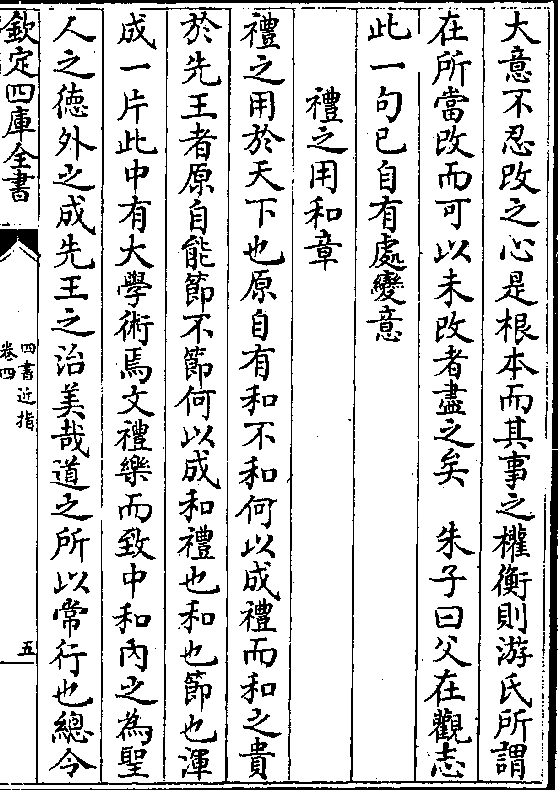 大意不忍改之心是根本而其事之權衡則游氏所謂
在所當改而可以未改者盡之矣　朱子曰父在觀志
此一句已自有處變意
禮之用和章
禮之用於天下也原自有和不和何以成禮而和之貴
於先王者原自能節不節何以成和禮也和也節也渾
成一片此中有大學術焉文禮樂而致中和內之為聖
人之德外之成先王之治美哉道之所以常行也總令
欽定四庫全書
四書近指
卷四
五